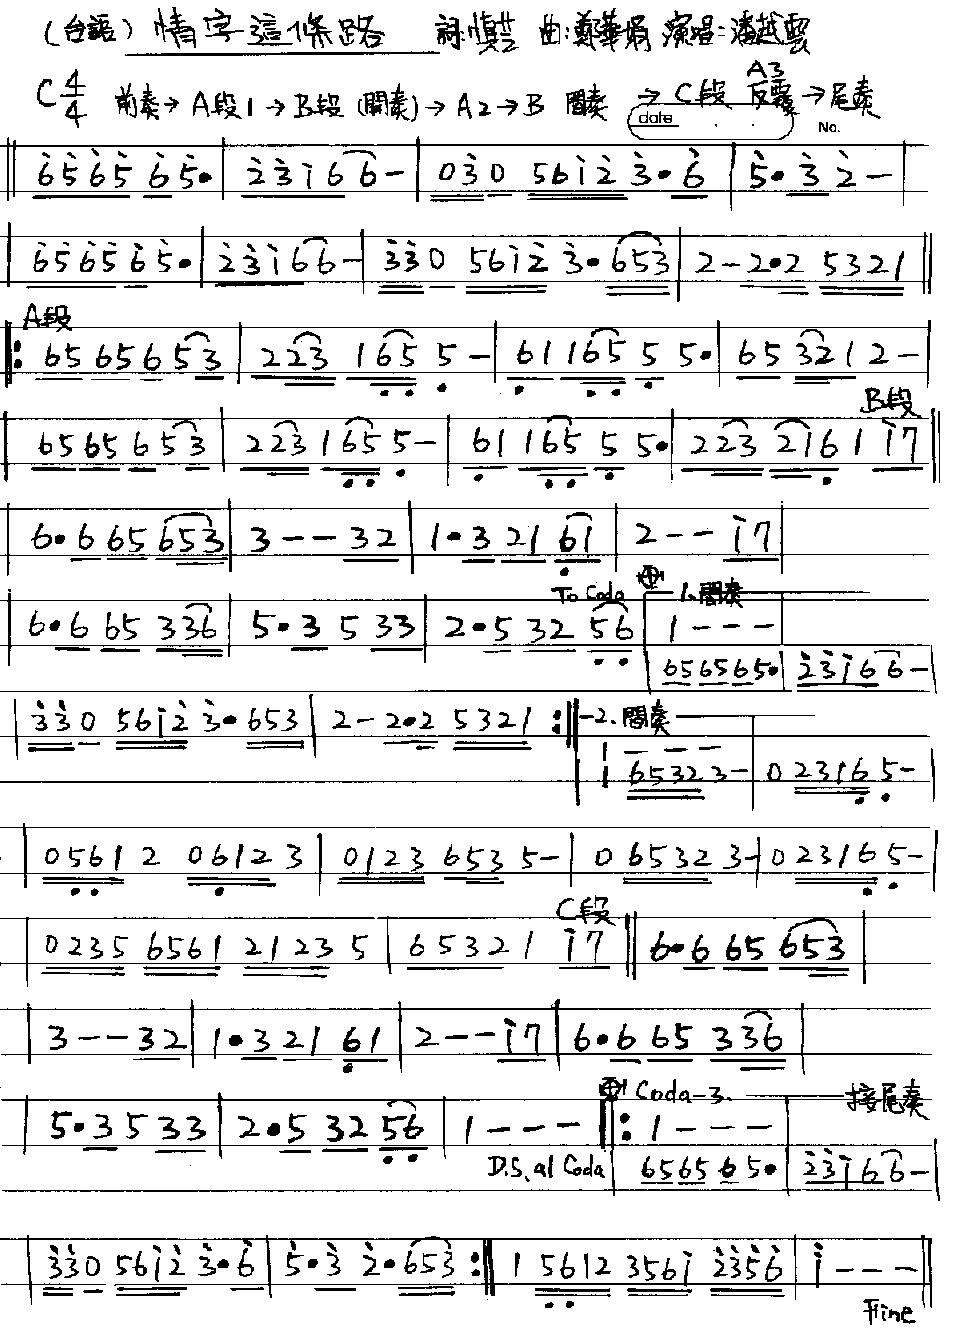 (台語) 情字這條路 詞:慎芝 曲:鄭華娟 演唱:潘越雲
C 4/4 前奏→A段1→B段(間奏)→A2→B 間奏 →C段 A3反覆→尾奏
date No.
‖ 6̇5̇6̇5̇ 6̇ 5̇• | 2̇3̇ i 6 6 - | 03̇0 56i2̇ 3̇•6̇ | 5̇•3̇ 2̇ - |
| 6̇5̇6̇5̇6̇5̇• | 2̇3̇i66- | 3̇3̇0 56i2̇ 3̇•653 | 2-2•2 5321 ‖
A段
‖: 65 65653 | 223 16̣5̣ 5̣ - | 6̣1 16̣5̣ 5̣ 5• | 65 3212- |
B段
| 6565653 | 22316̣5̣5̣- | 6̣1 16̣5̣ 5̣ 5• | 223 216̣1 i7 ‖
| 6•6 65 653 | 3--32 | 1•3 21 6̣1 | 2--i7 |
To Coda 1.間奏
| 6•6 65 336 | 5•3 5 33 | 2•5 32 5̣6̣ | 1---
| 656565• | 2̇3̇i66- |
| 3̇3̇0 56i2̇ 3̇•653 | 2-2•2 5321 :‖ 2.間奏
1 - - - -
65323- | 0 2316̣ 5̣- |
| 05̣6̣1 2 06̣12 3 | 0123 653 5- | 0 65323- | 0 2316̣5̣- |
C段
| 0235 6561 2123 5 | 65321 i7 ‖ 6•6 65 653 |
| 3--32 | 1•3 21 6̣1 | 2--i7 | 6•6 65 336 |
Coda-3. 接尾奏
| 5•3 5 33 | 2•5 32 5̣6̣ | 1--- ‖: 1---
D.S. al Coda | 6565 6 5• | 2̇3̇i66- |
| 3̇3̇0 56i2̇ 3̇•6̇ | 5̇•3̇ 2̇•653 :‖ 1 5̣6̣12 356i 2̇3̇5̇6̇ | i--- ‖
Fine